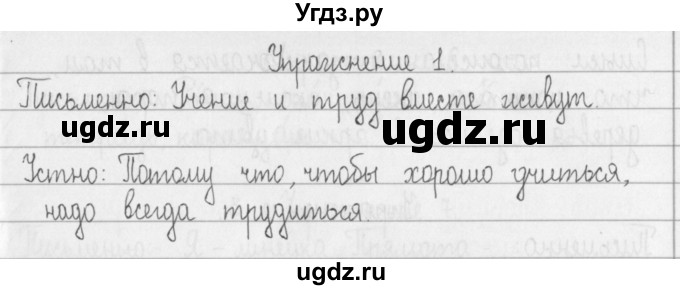 Угдз.ру
Упражнение 1.
Письменно: Учение и труд вместе живут.
ugdz.ru
ugdz.ru
Устно: Потому что, чтобы хорошо учиться,
надо всегда трудиться.
ugdz.ru
ugdz.ru